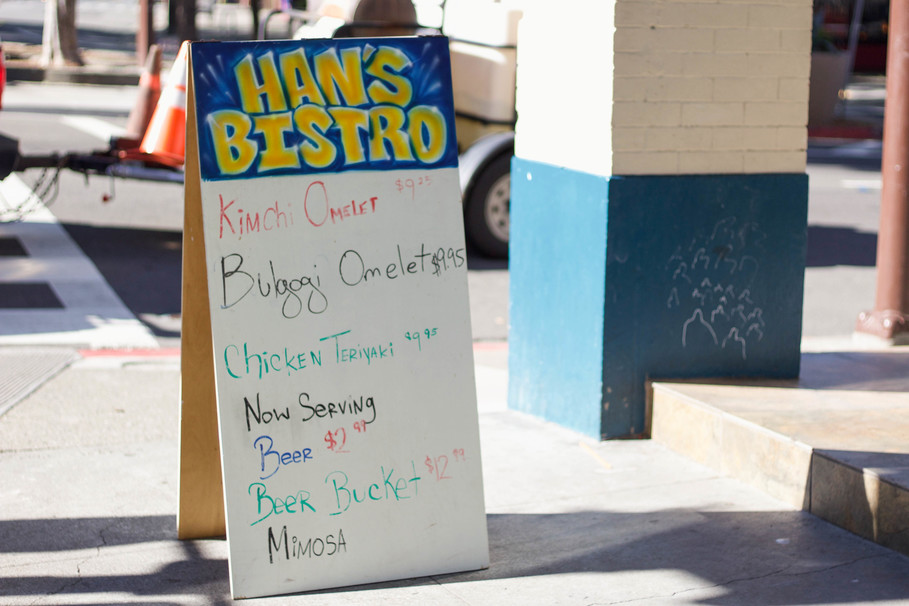 HAN'S
BISTRO
Kimchi Omelet $9.25
Bulaggi Omelet $9.95
Chicken Teriyaki $9.95
Now Serving
Beer $2.99
Beer Bucket $12.99
Mimosa